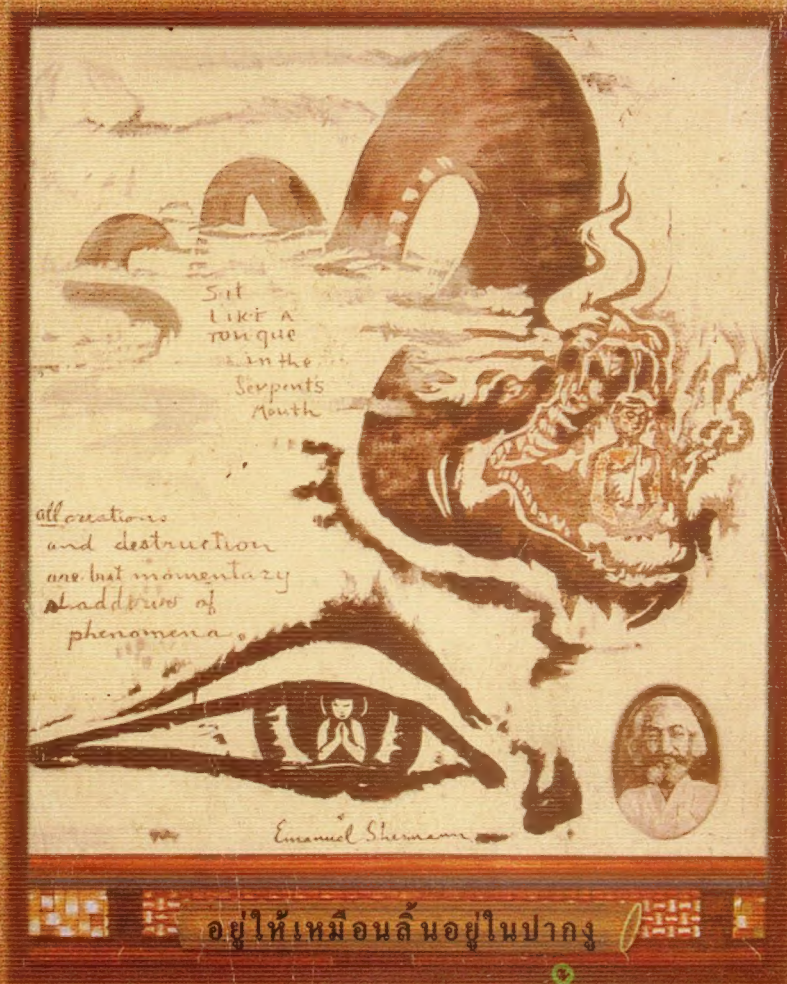 Sit
LIKE A
TONgUE
in the
Serpent's
Mouth
all creations
and destruction
are but momentary
shaddows of
phenomena.
Emanuel Shermann
อยู่ให้เหมือนลิ้นอยู่ในปากงู